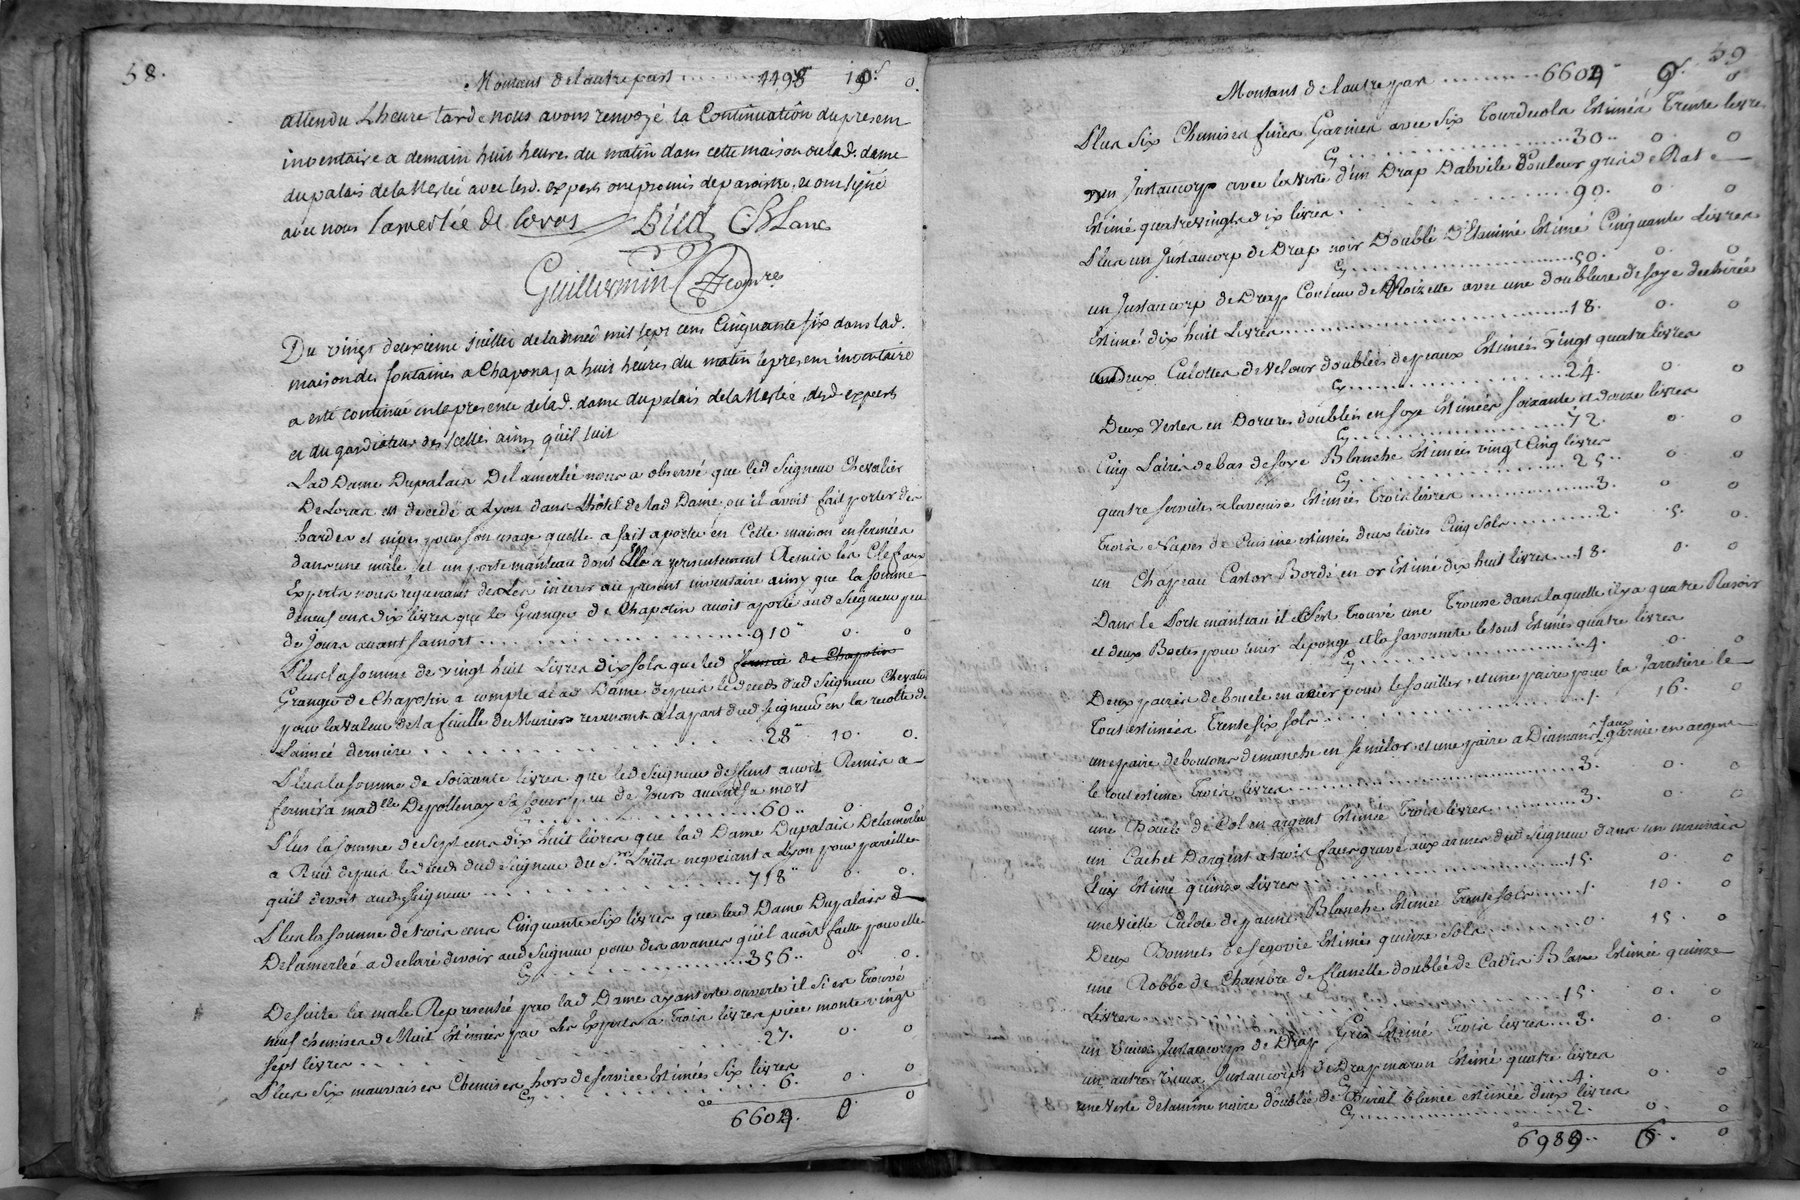 58.
Montant de lautre part ........ 4498 19s 0.
attendu Lheure tarde nous avons renvoyé la Continuation du presem
inventaire a demain huit heures du matin dans cette maison ou lad. dame
du palais de la Merlée avec lesd. experts ont promis de paroistre, et ont signé
avec nous lamerlée de loras Bied CBlanc
Guillermin Comre
Du vingt deuxieme juillet de lannée mil sept cens Cinquante six dans lad.
maison des fontaines a Chaponay a huit heures du matin le presem inventaire
a esté continué en la presence de lad. dame du palais de la Merlée, desd. experts
et du gardiateur des scellés ainsy qu'il suit
Lad Dame Dupalais Delamerlée nous a observé que led Seigneur Chevalier
De Loras est decedé a Lyon dans Lhôtel de lad Dame, ou il avoit fait porter des
hardes et nipes pour son usage quelle a fait aporter en Cette maison enfermées
dans une male et un porte manteau dont Elle a presentement Remis les Clefs aux
Experts nous requerant de les inserer au present inventaire ainsy que la somme
de neuf cens dix livres que le Granger de Chapotin avoit aporté aud Seigneur peu
de jours avant sa mort ........ 910" 0. 0
Plus la somme de vingt huit Livres dix sols que led fermier de Chapotin
Granger de Chapotin a compté a lad Dame depuis le decéds dud Seigneur Chevalier
pour la valeur de la feuille de Muriers revenant a la part dud seigneur en la recolte de
Lannée derniere ........ 28" 10. 0.
Plus la somme de soixante livres que led Seigneur deffunt avoit Remis a
fermer a madlle Depollenay sa soeur peu de Jours avant sa mort
Cy ........ 60" 0. 0.
Plus la somme de Sept cens dix huit livres que lad Dame Dupalais Delamerlée
a Reçu depuis le deceds dud Seigneur du Sr. negociant a Lyon pour pareille
qu'il devoit aud Seigneur ........ 718" 0. 0.
Plus la somme de trois cens Cinquante Six livres que lad Dame Dupalais d
Delamerlée a declaré devoir aud Seigneur pour des avances qu'il avoit faitte pour elle
Cy ........ 356" 0 0.
De suite la male Representée par lad Dame ayant esté ouverte il si est Trouvé
neuf chemises de Nuit Estimées par Les Experts a Trois livres piece monte vingt
sept livres ........ 27. 0. 0
Plus Six mauvaises Chemises hors de service Estimées Six livres
Cy ........ 6. 0. 0
6604. 9. 0
59
Montant de lautre part ........ 6604 9s. 0
Plus Six Chemises fines Garnies avec Six Tourdecols Estimées Trente livres
Cy ........ 30.. 0. 0
un Justaucorp avec la veste d'un Drap Dabvile Couleur gris de Rat
Estimé quatre vingts dix livres ........ 90. 0. 0
Plus un Justaucorp de Drap noir Doublé D'Etamine Estimé Cinquante Livres
Cy ........ 50. 0. 0
un Justaucorp de Drap Couleur de Noizette avec une doublure de soye dechirée
Estimé dix huit Livres ........ 18. 0. 0
Deux Culottes de Velour doublées de peaux Estimées Vingt quatre livres
Cy ........ 24. 0. 0
Deux Vestes en Dorures doublées en soye Estimées soixante et douze livres
Cy ........ 72. 0. 0
Cinq Paires de bas de soye Blanche Estimées vingt Cinq livres
Cy ........ 25.. 0. 0
quatre serviettes a la venise Estimées Trois livres ........ 3. 0. 0
Trois Napes de Cuisine estimées deux livres Cinq Sols ........ 2. 5. 0.
un Chapeau Castor Bordé en or Estimé dix huit livres ... 18. 0. 0
Dans le Porte manteau il est Trouvé une Trousse dans laquelle il y a quatre Rasoir
et deux Boetes pour tenir Leponge et la savonnete le tout Estimés quatre livres
Cy ........ 4. 0. 0
Deux paires de boucle en acier pour le soullier, et une paire pour la Jarretiere le
Tout estimées Trente six sols ........ 1. 16. 0
une paire de boutons de manche en semilor, et une paire a Diamans faux garnie en argent
le tout estimé Trois livres ........ 3. 0. 0
une Boucle de Col en argent Estimée Trois livres ........ 3. 0. 0
un Cachet Dargent a trois faces gravé aux armes dud Seigneur dans un mauvais
Etuy Estimé quinze Livres ........ 15. 0. 0
une Vieille Culote de panne Blanche Estimée Trente sols ........ 1. 10. 0
Deux Bonnets de segovie Estimés quinze sols ........ 0. 15. 0
une Robbe de Chambre de flanelle doublée de Cadis Blanc Estimée quinze
Livres ........ 15. 0. 0
un Vieux Justaucorps de Drap Gris Estimé Trois livres ... 3. 0. 0
un autre Vieux Justaucorps de Drap maron Estimé quatre livres
Cy ........ 4. 0. 0
une Veste detamine noire doublée de blanc estimée deux livres
Cy ........ 2. 0. 0
6989.. 15. 0